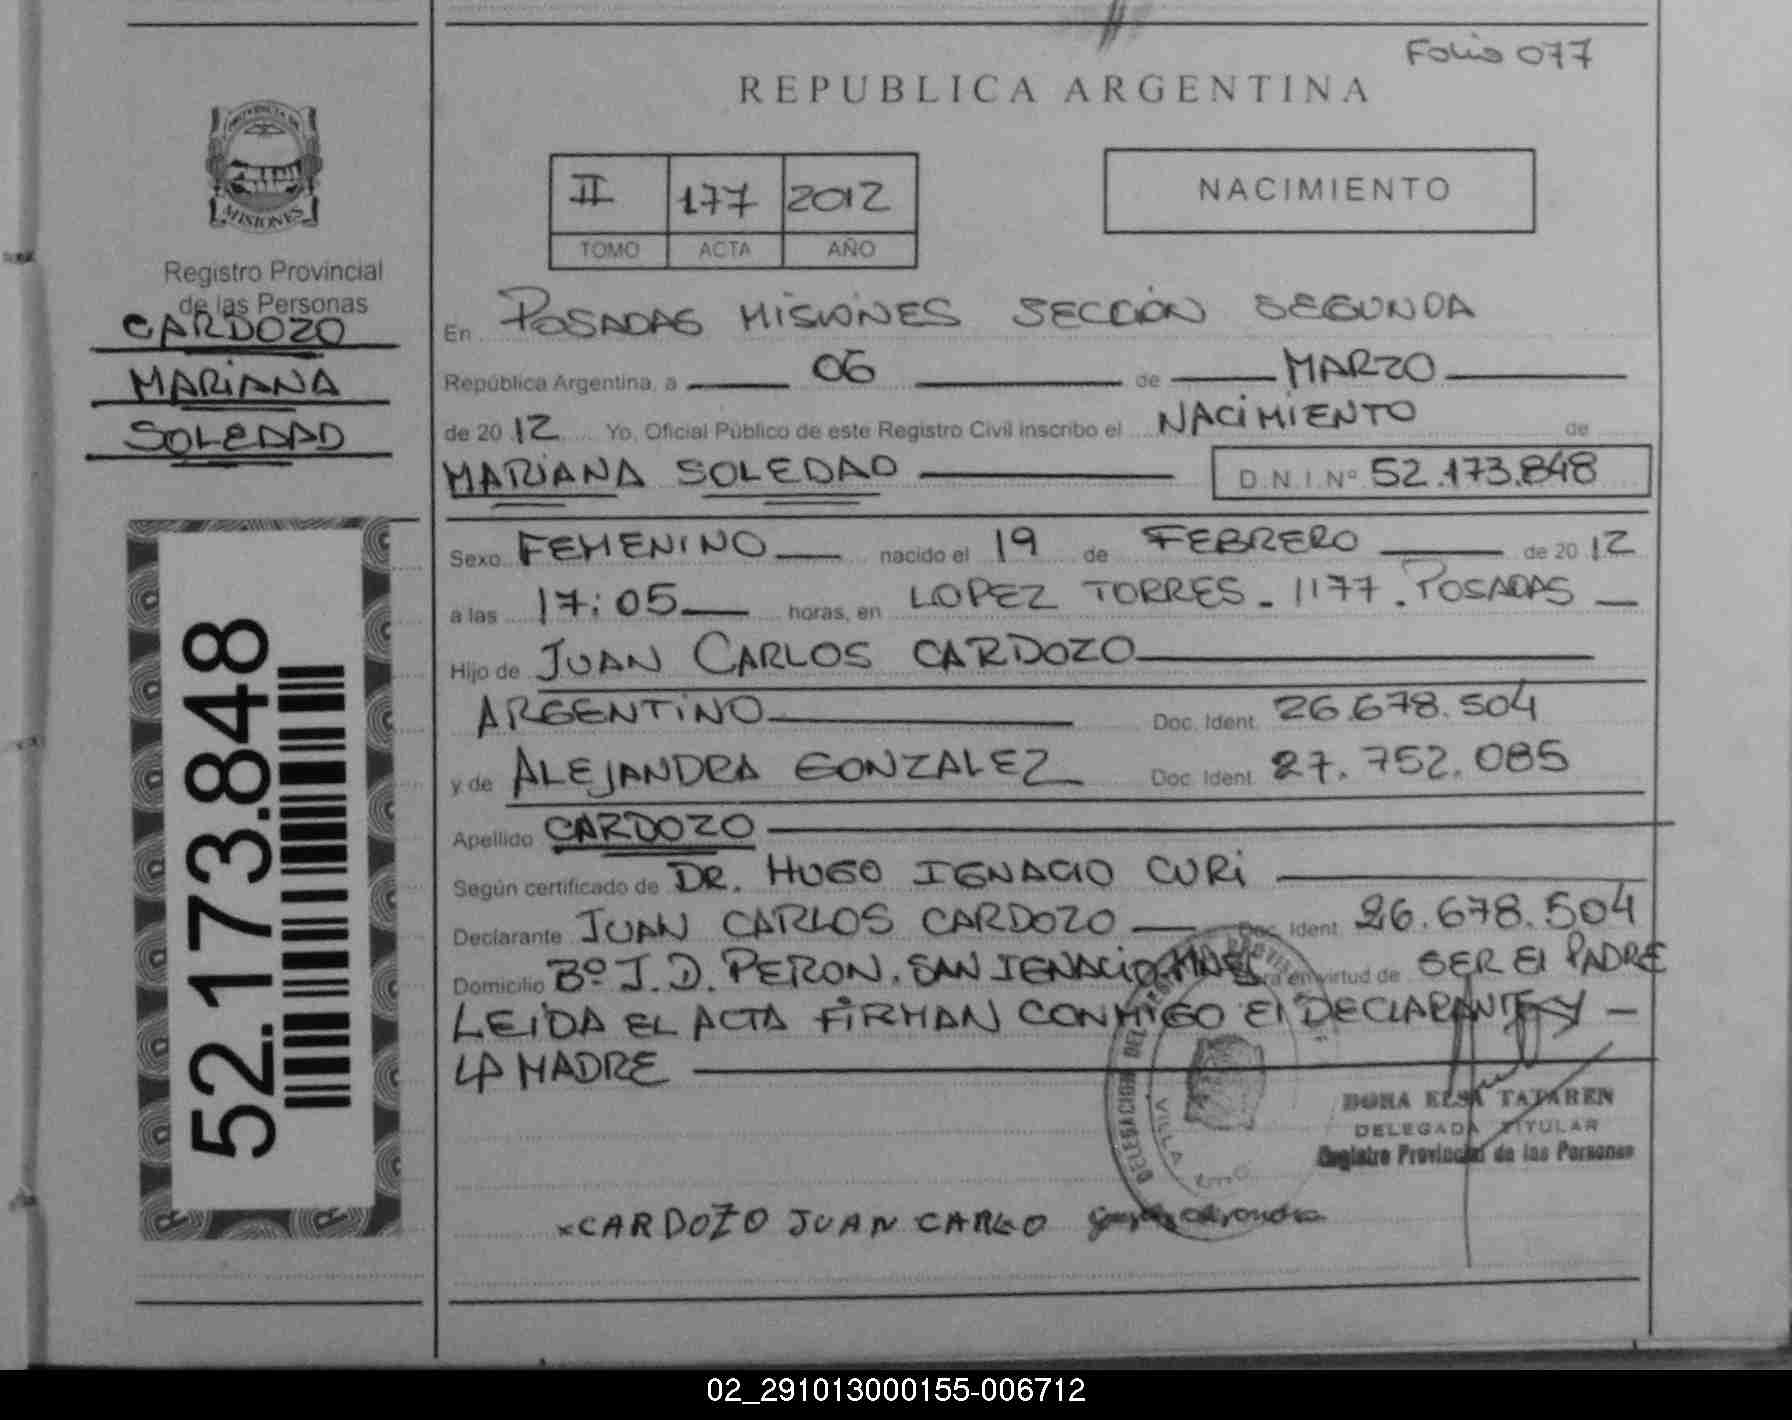 Folio 077
REPUBLICA ARGENTINA
PROVINCIA DE
MISIONES
Registro Provincial
de las Personas
CARDOZO
MARIANA
SOLEDAD
52.173.848
II 177 2012
TOMO ACTA AÑO
NACIMIENTO
En POSADAS MISIONES SECCIÓN SEGUNDA
República Argentina, a 06 de MARZO
de 2012 Yo, Oficial Público de este Registro Civil inscribo el NACIMIENTO de
MARIANA SOLEDAD D.N.I.Nº 52.173.848
Sexo FEMENINO nacido el 19 de FEBRERO de 2012
a las 17:05 horas, en LOPEZ TORRES - 1177. POSADAS
Hijo de JUAN CARLOS CARDOZO
ARGENTINO Doc. Ident. 26.678.504
y de ALEJANDRA GONZALEZ Doc. Ident. 27.752.085
Apellido CARDOZO
Según certificado de DR. HUGO IGNACIO CURI
Declarante JUAN CARLOS CARDOZO Doc. Ident. 26.678.504
Domicilio Bº J.D. PERON. SAN IGNACIO. MNES en virtud de SER El PADRE
LEIDA EL ACTA FIRMAN CONMIGO El DECLARANTE Y
LA MADRE
DELEGACION DEL
VILLA
DORA ELSA TATAREN
DELEGADA TITULAR
Registro Provincial de las Personas
xCARDOZO JUAN CARLO
02_291013000155-006712